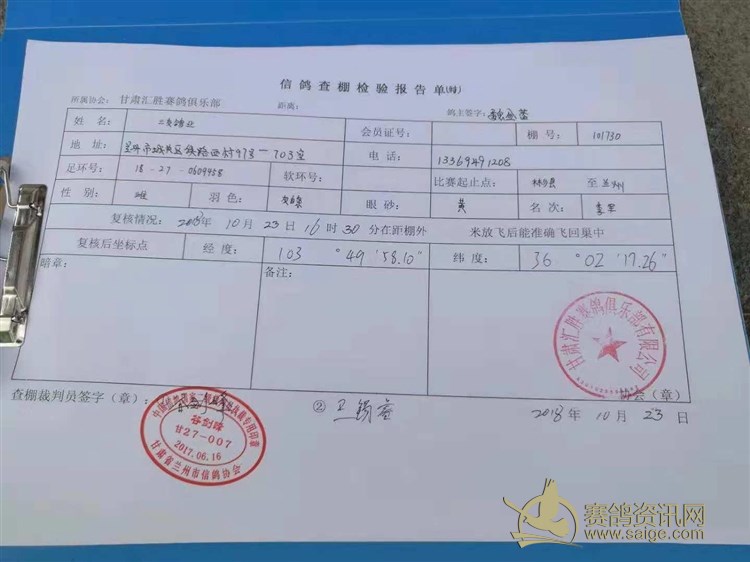 信鸽查棚检验报告单(时)
所属协会: 甘肃汇胜赛鸽俱乐部 距离: 鸽主签字:
姓 名 会员证号: 棚 号: 101730
地 址: 703室 电 话: 13369491208
足环号: 18-27-0609458 软环号: 比赛起止点: 至兰州
性 别: 雄 羽色: 眼 砂: 黄 名 次: 季军
复核情况: 2018年 10月 23日 16时 30分在距棚外 米放飞后能准确飞回巢中
复核后坐标点 经 度: 103 °49 '58.10" 纬 度: 36 °02 '17.26"
暗章: 备注:
甘肃汇胜赛鸽俱乐部有限公司
查棚裁判员签字(章): ② 王锡 协会(章)
谷剑峰
甘27-007
2017.06.16
甘肃省兰州市信鸽协会
2018年 10月 23日
赛鸽资讯网
www.saige.com